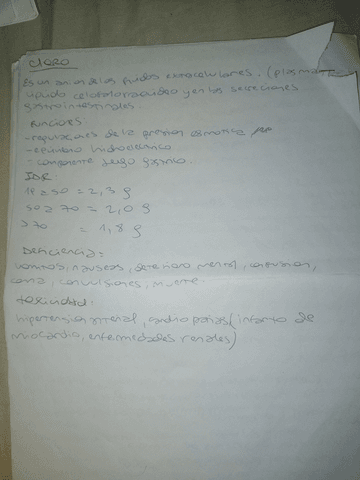 CLORO
Es un anion de los fluidos extracelulares. (plasma
liquido cefalorraquideo y en las secreciones
gastrointestinales.
Funciones
- regulaciones de la presion osmotica
- equilibrio hidroelectrico
- componente jugo gastrico.
IDR:
19 a 50 = 2,3 g
50 a 70 = 2,0 g
>70 = 1,8 g
Deficiencia:
vomitos, nauseas, deterioro mental, confusion,
coma, convulsiones, muerte
toxicidad:
hipertension arterial, cardiopatias (infarto de
miocardio, enfermedades renales)